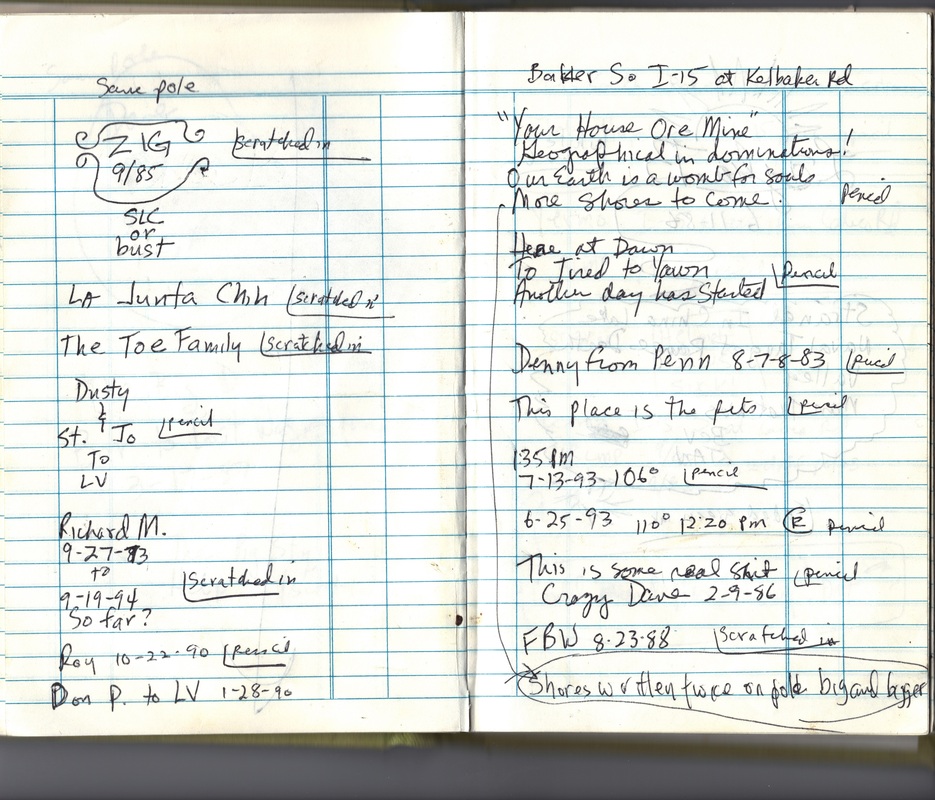 Same pole
ZIG
9/85
scratched in
SLC
or
bust
LA Junta Chih scratched in
The Toe Family scratched in
Dusty
&
St. Jo pencil
To
LV
Richard M.
9-27-83
to
scratched in
9-19-94
So far?
Roy 10-22-90 pencil
Don P. to LV 1-28-90
Baker So I-15 at Kelbaker Rd
"Your House Ore Mine"
Geographical in dominations!
Our Earth is a womb for souls
More Shores to Come. pencil
Here at Dawn
To Tired to Yawn pencil
Another day has Started
Denny from Penn 8-7-8-83 pencil
This place is the pits pencil
1:35 PM
7-13-93-106° pencil
6-25-93 110° 12:20 pm E pencil
This is some real shit pencil
Crazy Dave 2-9-86
FBW 8-23-88 scratched in
Shores written twice on pole big and bigger